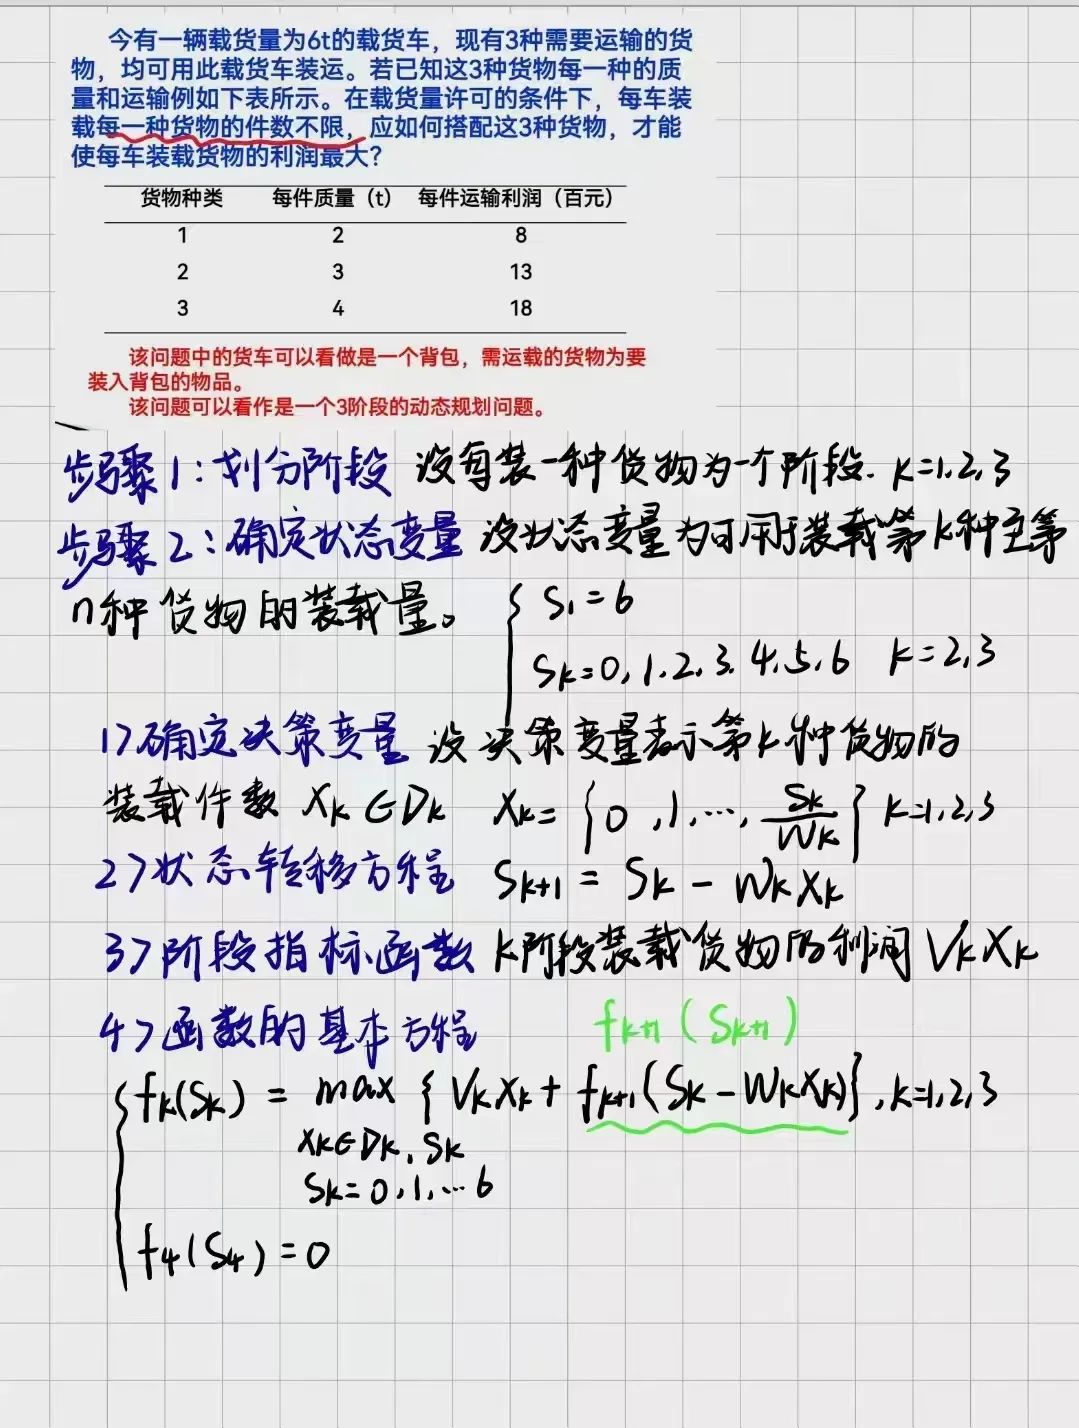 今有一辆载货量为6t的载货车，现有3种需要运输的货
物，均可用此载货车装运。若已知这3种货物每一种的质
量和运输例如下表所示。在载货量许可的条件下，每车装
载每一种货物的件数不限，应如何搭配这3种货物，才能
使每车装载货物的利润最大？
货物种类 每件质量（t） 每件运输利润（百元）
1 2 8
2 3 13
3 4 18
该问题中的货车可以看做是一个背包，需运载的货物为要
装入背包的物品。
该问题可以看作是一个3阶段的动态规划问题。
步骤1：划分阶段 设每装一种货物为一个阶段. k=1,2,3
步骤2：确定状态变量 设状态变量为可用于装载第k种至第
n种货物的装载量。 S₁=6
Sk=0,1,2,3,4,5,6 k=2,3
1>确定决策变量 设决策变量表示第k种货物的
装载件数 Xk∈Dk Xk={0,1,…,Sk/Wk} k=1,2,3
2>状态转移方程 Sk+1 = Sk - WkXk
3>阶段指标函数 k阶段装载货物的利润 VkXk
4>函数的基本方程 fk+1(Sk+1)
fk(Sk) = max {VkXk + fk+1(Sk-WkXk)}, k=1,2,3
Xk∈Dk, Sk
Sk=0,1,…6
f4(S4)=0